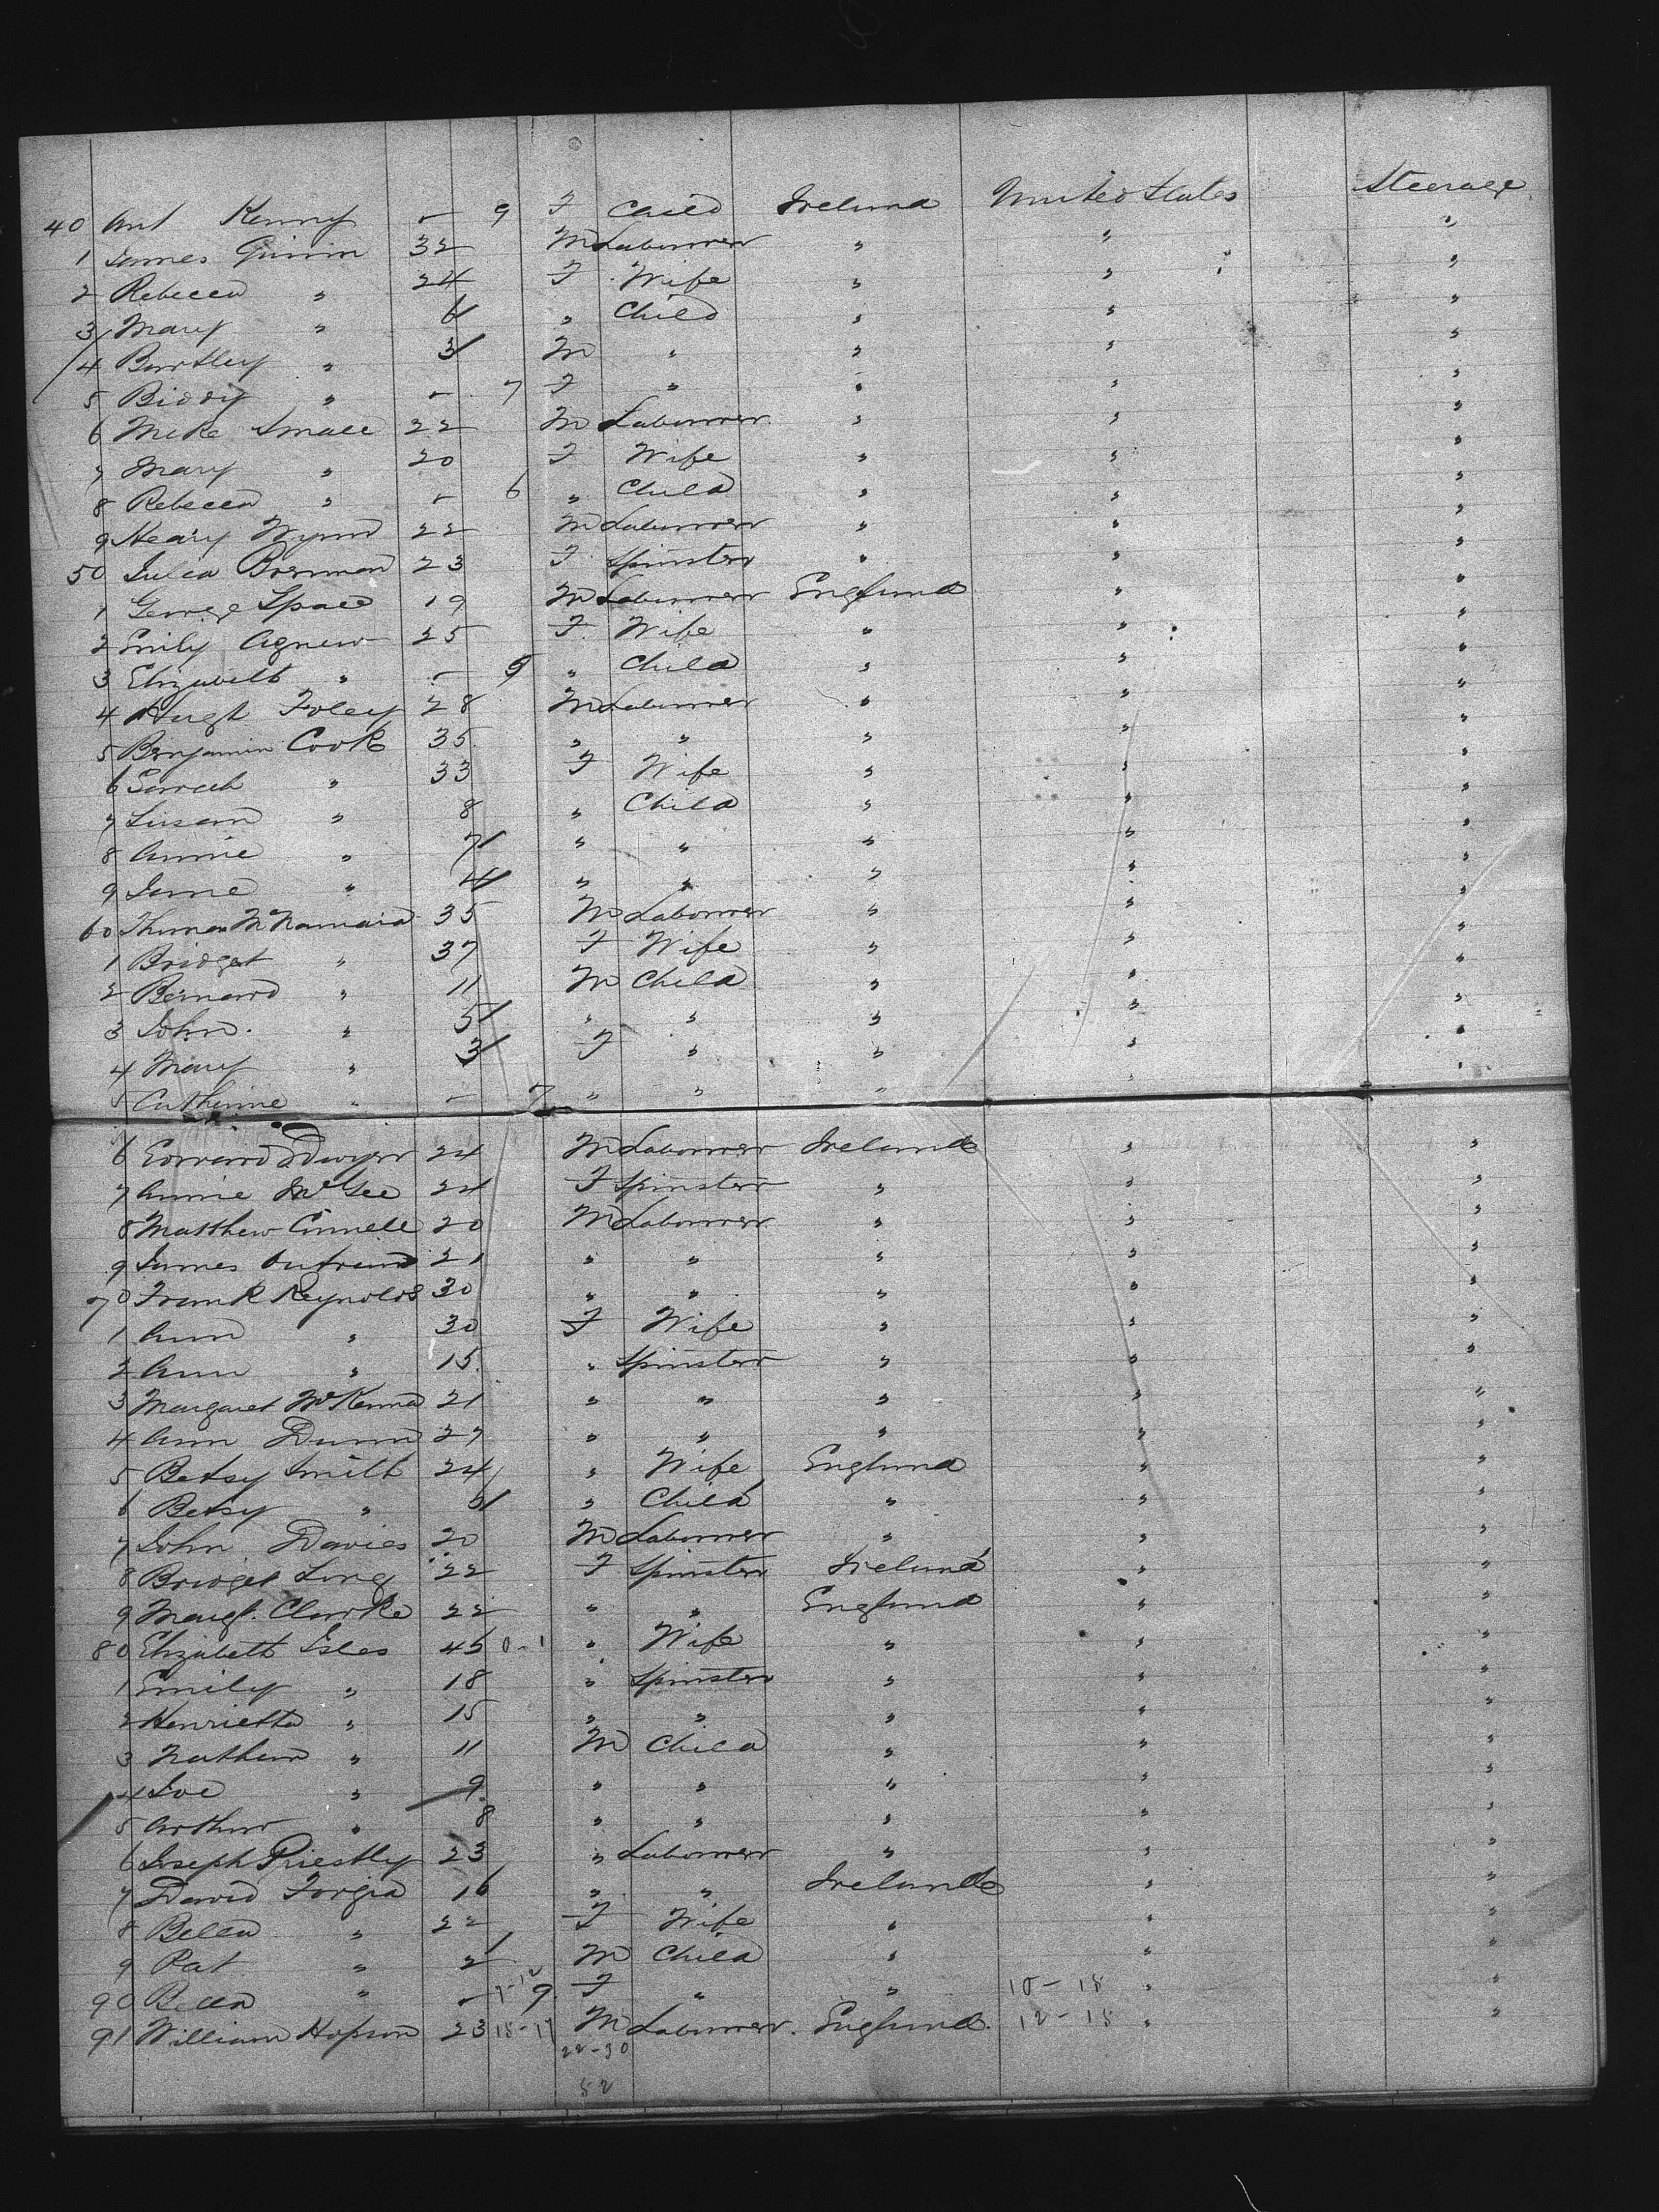 40 Ant Kenny - 9 F Child Ireland United States Steerage
1 James 32 M Labourer " " "
2 Rebecca " 24 F Wife " " "
3 Mary " 6 " Child " " "
4 Bartley " 3 M " " " "
5 Biddy " - 7 F " " " "
6 Mike Small 22 M Labourer " " "
7 Mary " 20 F Wife " " "
8 Rebecca " - 6 " Child " " "
9 Heary Wynn 22 M Labourer " " "
50 Julia Brennan 23 F Spinster " " "
1 George 19 M Labourer England " "
2 Emily Agnew 25 F Wife " " "
3 Elizabeth " - 9 " Child " " "
4 Hugh Foley 28 M Labourer " " "
5 Benjamin Cook 35 " " " " "
6 Sarah " 33 F Wife " " "
7 Susan " 8 " Child " " "
8 Annie " 7 " " " " "
9 Jane " 4 " " " " "
60 Thomas McNamara 35 M Labourer " " "
1 Bridget " 37 F Wife " " "
2 Bernard " 11 M Child " " "
3 John " 5 " " " " "
4 Mary " 3 F " " " "
5 Catherine " - 7 " " " " "
6 Edward Dwyer 24 M Labourer Ireland " "
7 Annie McGee 24 F Spinster " " "
8 Matthew Connell 20 M Labourer " " "
9 James 21 " " " " "
70 Frank Reynolds 30 " " " " "
1 Ann " 30 F Wife " " "
2 Ann " 15 " Spinster " " "
3 Margaret McKenna 21 " " " " "
4 Ann Dunn 27 " " " " "
5 Betsy Smith 24 " Wife England " "
6 Betsy " " Child " " "
7 John Davies 20 M Labourer " " "
8 Bridget Long 22 F Spinster Ireland " "
9 Margt. Clarke 22 " " England " "
80 Elizabeth Isles 45 0-1 " Wife " " "
1 Emily " 18 " Spinster " " "
2 Henrietta " 15 " " " " "
3 Nathan " 11 M Child " " "
4 Joe " 9 " " " " "
5 Arthur " 8 " " " " "
6 Joseph Priestly 23 " Labourer " " "
7 David 16 " " Ireland " "
8 Bella " 22 F Wife " " "
9 Pat " 2 M Child " " "
90 Bella " - 9 F " " 10-18 " "
91 William Hopson 23 18-17 M Labourer. England. 12-18 " "
22-30
52